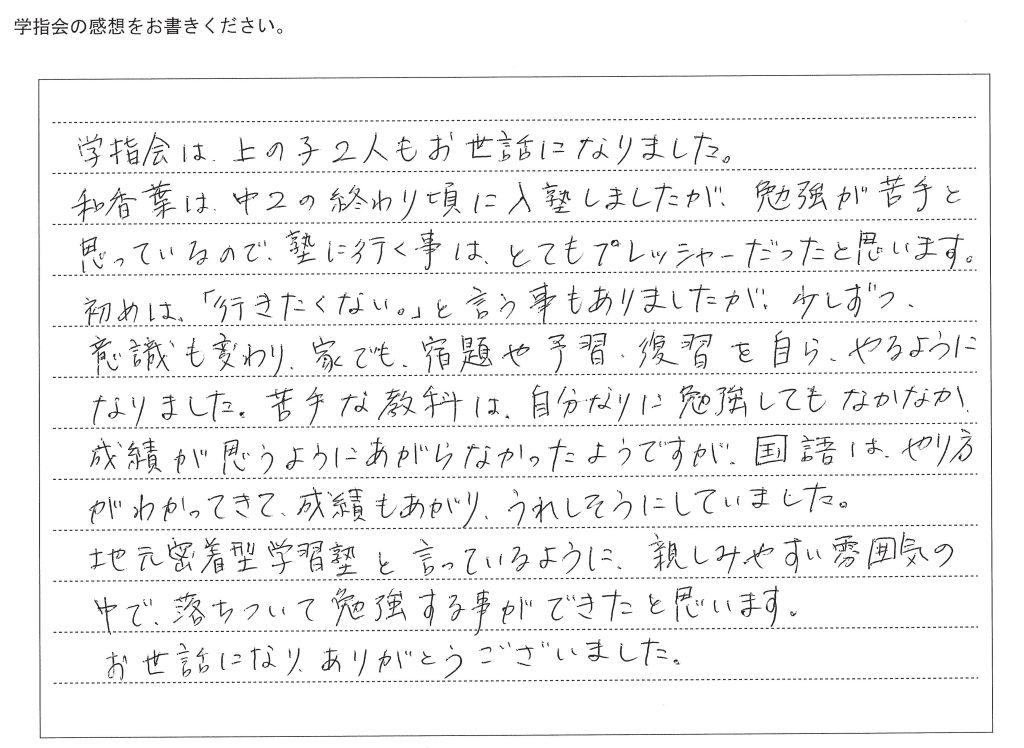 学指会の感想をお書きください。
学指会は、上の子2人もお世話になりました。
和香葉は、中2の終わり頃に入塾しましたが、勉強が苦手と
思っているので、塾に行く事は、とてもプレッシャーだったと思います。
初めは、「行きたくない。」と言う事もありましたが、少しずつ、
意識も変わり、家でも、宿題や予習、復習を自ら、やるように
なりました。苦手な教科は、自分なりに勉強してもなかなか、
成績が思うようにあがらなかったようですが、国語は、やり方
がわかってきて、成績もあがり、うれしそうにしていました。
地元密着型学習塾と言っているように、親しみやすい雰囲気の
中で、落ちついて勉強する事ができたと思います。
お世話になり、ありがとうございました。